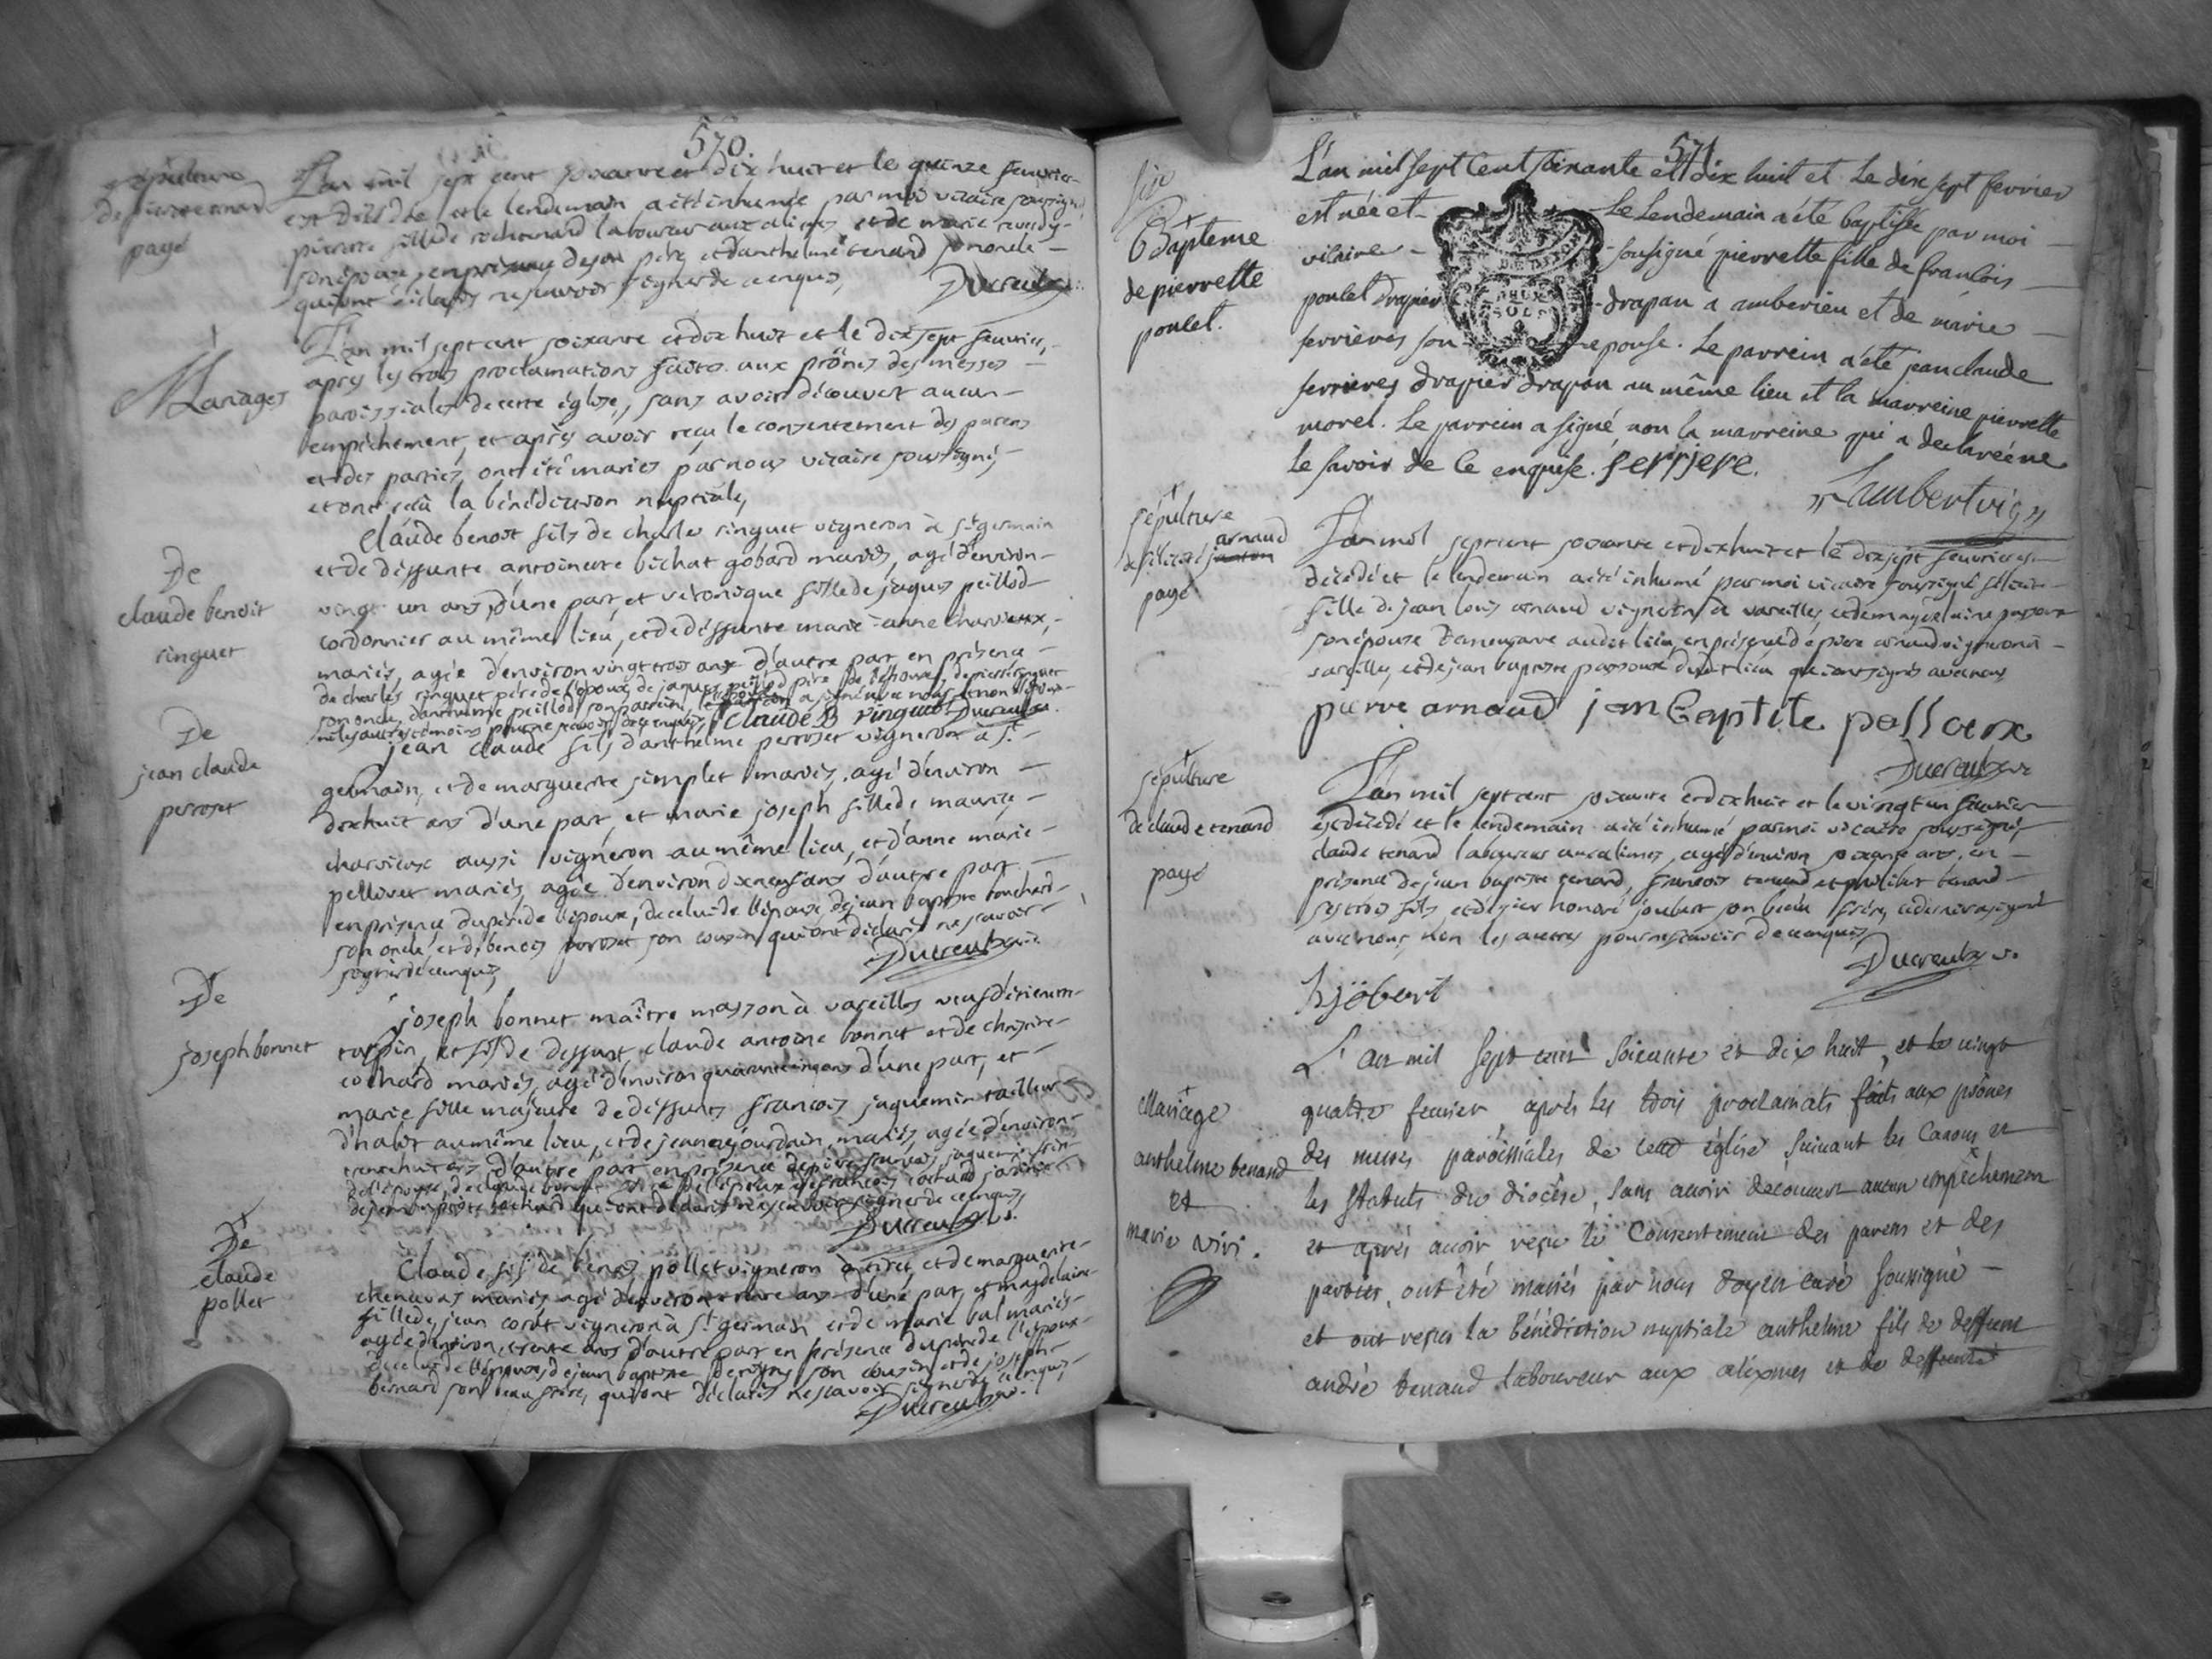 570.
sépulture
de pierrette tenard
payé
L'an mil sept cent soixante et dix huit et le quinze feuvrier
est décédée et le lendemain a été inhumée par moi vicaire soussigné
pierrette fille de roch tenard laboureur aux alimes et de marie
son épouse, en présence de son père, et d'anthelme tenard son oncle
qui ont déclarés ne sçavoir signer de ce enquis,
Ducreux
Mariages
L'an mil sept cent soixante et dix huit et le dix sept feuvrier,
après les trois proclamations faites aux prônes des messes
paroissiales de cette église, sans avoir découvert aucun
empêchement, et après avoir reçu le consentement des parens
et des parties, ont été mariés par nous vicaire soussigné,
et ont reçu la bénédiction nuptiale,
De
claude benoit
ringuet
Claude benoit fils de charles ringuet vigneron à st germain
et de deffunte antoinette bichat gobard mariés, agé d'environ
vingt un ans d'une part, et véronique fille de jaques peillod
cordonnier au même lieu, et de deffunte marie-anne charvieux,
mariés, agée d'environ vingt trois ans d'autre part en présence
de charles ringuet père de l'époux, de jaques peillod père de l'épouse, de pierre ringuet
son oncle, d'anthelme peillod son parrain, l'époux a signé avec nous et non l'épouse
ni les autres témoins pour ne sçavoir de ce enquis, Claude B ringuet Ducreux
De
jean claude
perroset
jean claude fils d'anthelme perroset vigneron à st
germain, et de marguerite simplet mariés, agé d'environ
dixhuit ans d'une part, et marie joseph fille de maurice
charvieux aussi vigneron au même lieu, et d'anne marie
pellovet mariés, agée d'environ dixneuf ans d'autre part
en présence du père de l'époux, de celui de l'épouse, de jean baptiste
son oncle, et de benoit perroset son cousin qui ont déclaré ne sçavoir
signer de ce enquis,
Ducreux vic.
De
joseph bonnet
joseph bonnet maître masson à vareilles veuf d'étiennette
turpin, et fils de deffunt claude antoine bonnet et de christine
cochard mariés, agé d'environ quarante cinq ans d'une part, et
marie fille majeure de deffunts françois jaquemin tailleur
d'habit au même lieu, et de jeanne jourdain mariés, agée d'environ
trente huit ans d'autre part, en présence de pierre jaquemin frère
de l'épouse, de claude bonnet de l'époux de françois cochard
et de pierre cochard qui ont déclaré ne sçavoir signer de ce enquis,
Ducreux v.
De
claude
pollet
Claude fils de benoit pollet vigneron à tiret, et de marguerite
chenavas mariés agé d'environ trente ans d'une part, et magdelaine
fille de jean coret vigneron à st germain et de marie bal mariés
agée d'environ trente ans d'autre part en présence du père de l'époux
de celui de l'épouse, de jean baptiste son cousin et de joseph
bernard son beau frère, qui ont déclarés ne sçavoir signer de ce enquis,
Ducreux v.
571
Baptême
de pierrette
poulet.
L'an mil sept cent soixante et dix huit et le dix sept fevrier
est née et le lendemain a été baptisée par moi
vicaire sousigné pierrette fille de francois
poulet drapier drapan a amberieu et de marie
ferrieres son epouse. Le parrein a été jean claude
ferrieres drapier drapan au même lieu et la marreine pierrette
morel. Le parrein a signé non la marreine qui a declaré ne
le savoir de ce enquise. ferriere.
Lambert vic
sépulture
arnaud
de felicité
payé
L'an mil sept cent soixante et dix huit et le dix sept feuvrier est
décédée et le lendemain a été inhumée par moi vicaire soussigné félicité
fille de jean louis arnaud vigneron à vareilles, et de magdelaine passoux
son épouse demeurant audit lieu, en présence de pierre arnaud vigneron à
vareilles, et de jean baptiste passoux dudit lieu qui ont signés avec nous,
pierre arnaud jan Baptite possoux
Ducreux v
sépulture
de claude tenard
payé
L'an mil sept cent soixante et dix huit et le vingt un feuvrier
est décédé et le lendemain a été inhumé par moi vicaire soussigné,
claude tenard laboureur aux alimes, agé d'environ soixante ans, en
présence de jean baptiste tenard, françois tenard et philibert tenard
ses trois fils, et de sieur honoré joubert son beau frère, ce dernier a signé
avec nous, non les autres pour ne sçavoir de ce enquis,
Ducreux v.
hjöbert
Mariage
anthelme tenand
et
marie vivi.
L'an mil sept cent soixante et dix huit, et le vingt
quatre fevrier, après les trois proclamats faits aux prônes
des messes paroissiales de cette église suivant les canons et
les statuts du diocèse, sans avoir découvert aucun empêchement
et après avoir reçu le consentement des parens et des
parties, ont été mariés par nous doyen curé soussigné
et ont reçus la bénédiction nuptiale anthelme fils de deffunt
andré tenand laboureur aux aléymes et de deffunte